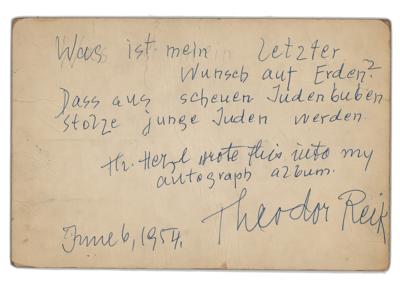 Was ist mein letzter
Wunsch auf Erden?
Dass aus scheuen Judenbuben
stolze junge Juden werden.
Th. Herzl wrote this into my
autograph album.
Theodor Reik
June 6, 1954.